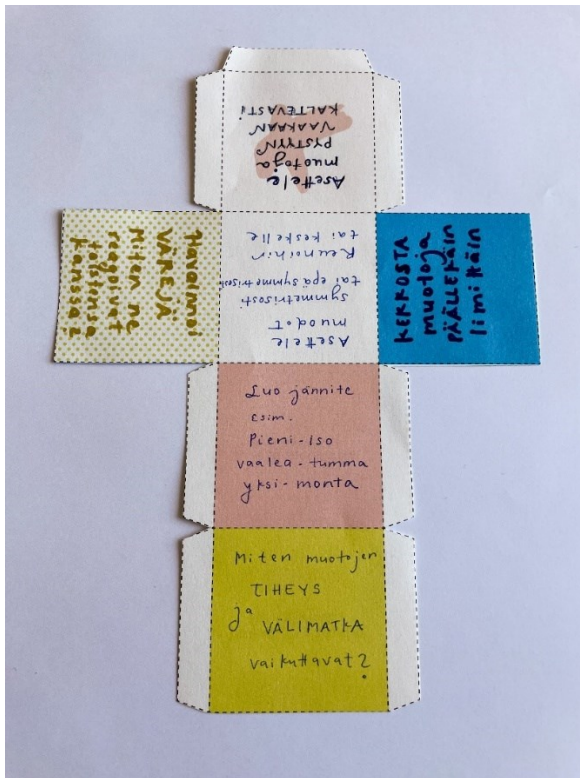 Asettele
muotoja
PYSTYYN
VAAKAAN
KALTEVASTI
Havainnoi
VÄREJÄ
Miten ne
reagoivat
toistensa
kanssa?
Asettele
muodot
symmetrisesti
tai epäsymmetrisesti
Reunoihin
tai keskelle
KERROSTA
muotoja
PÄÄLLEKÄIN
limittäin
Luo jännite
esim.
Pieni-Iso
vaalea-tumma
yksi-monta
Miten muotojen
TIHEYS
ja VÄLIMATKA
vaikuttavat?